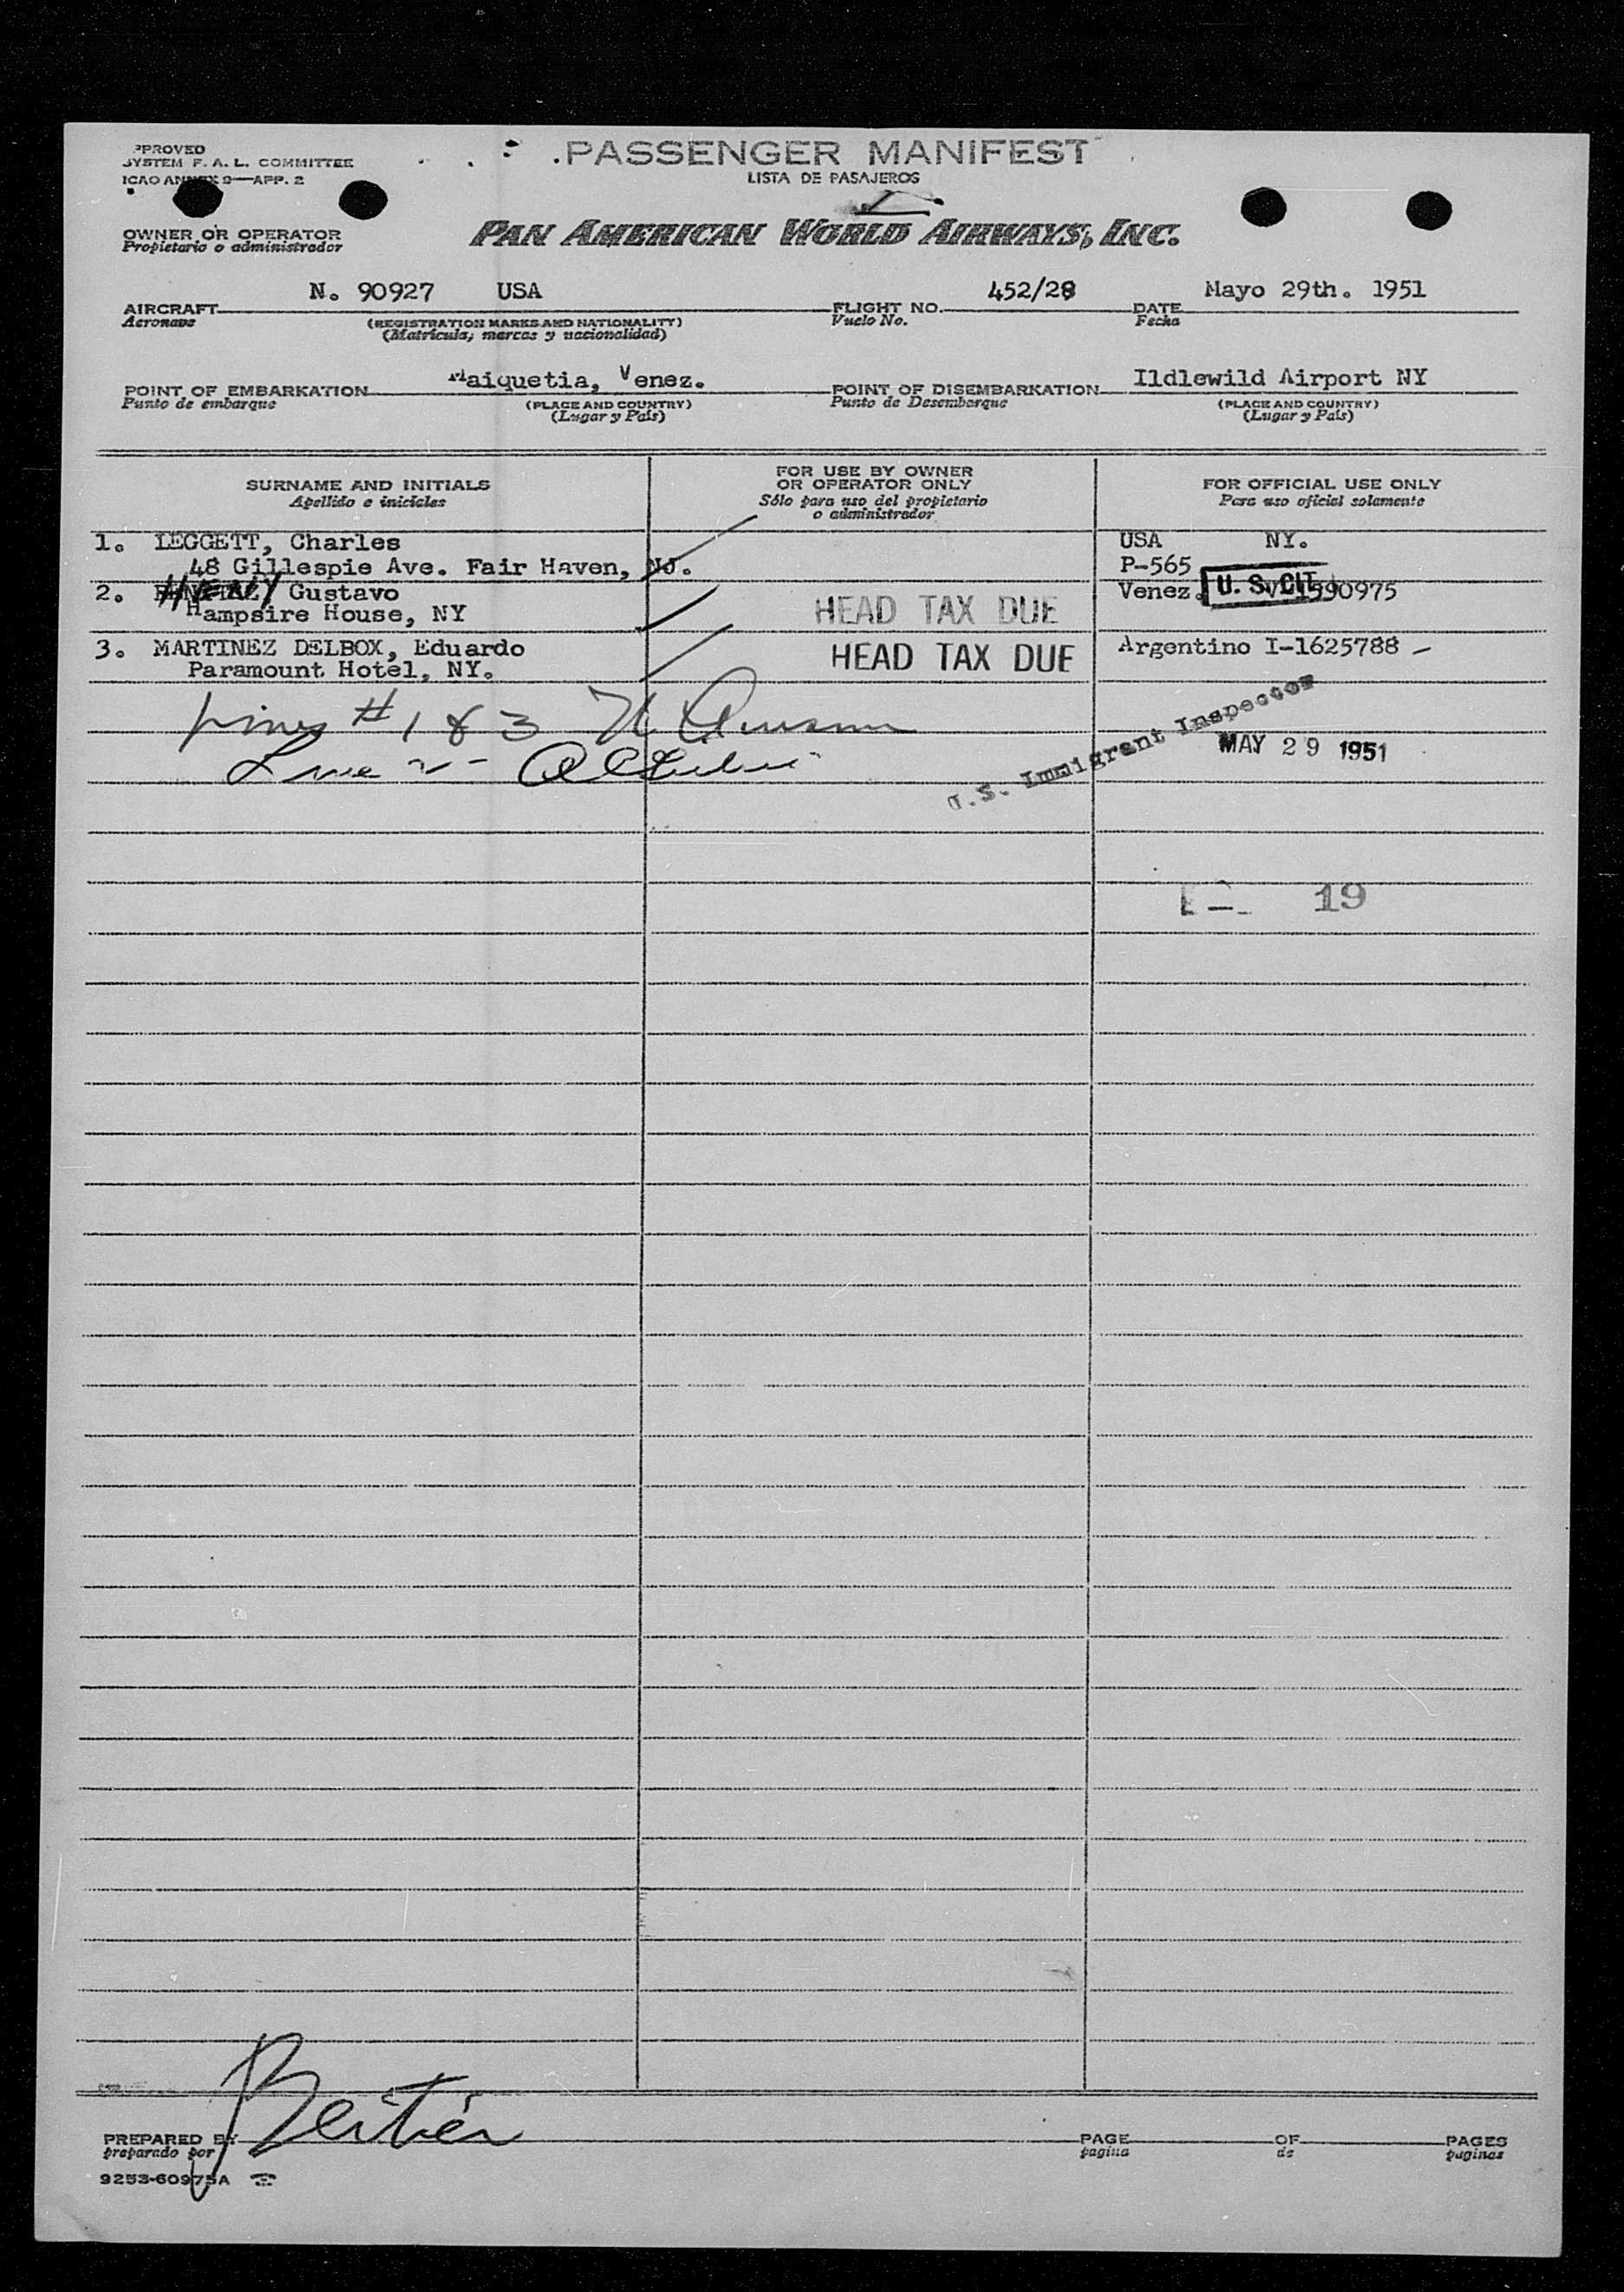 PPROVED
SYSTEM F. A. L. COMMITTEE
ICAO ANNEX 9—APP. 2
PASSENGER MANIFEST
LISTA DE PASAJEROS
OWNER OR OPERATOR
Propietario o administrador
PAN AMERICAN WORLD AIRWAYS, INC.
AIRCRAFT N. 90927 USA FLIGHT NO. 452/28 DATE Mayo 29th. 1951
Aeronave (REGISTRATION MARKS AND NATIONALITY) Vuelo No. Fecha
(Matrícula, marcas y nacionalidad)
POINT OF EMBARKATION Maiquetia, Venez. POINT OF DISEMBARKATION Ildlewild Airport NY
Punto de embarque (PLACE AND COUNTRY) Punto de Desembarque (PLACE AND COUNTRY)
(Lugar y País) (Lugar y País)
SURNAME AND INITIALS
Apellido e iniciales
FOR USE BY OWNER
OR OPERATOR ONLY
Sólo para uso del propietario
o administrador
FOR OFFICIAL USE ONLY
Para uso oficial solamente
1. LEGGETT, Charles USA NY.
48 Gillespie Ave. Fair Haven, NJ. P-565
2. Gustavo HEAD TAX DUE Venez. U. S. CIT 590975
Hampsire House, NY
3. MARTINEZ DELBOX, Eduardo HEAD TAX DUE Argentino I-1625788 -
Paramount Hotel, NY.
Lines # 1 & 3
Line 2 -
U.S. Immigrant Inspector
MAY 29 1951
19
PREPARED BY PAGE OF PAGES
preparado por pagina de paginas
9253-60975A